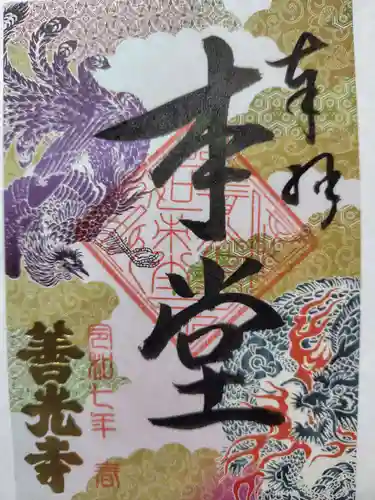 奉拝
本堂
令和七年 春
善光寺